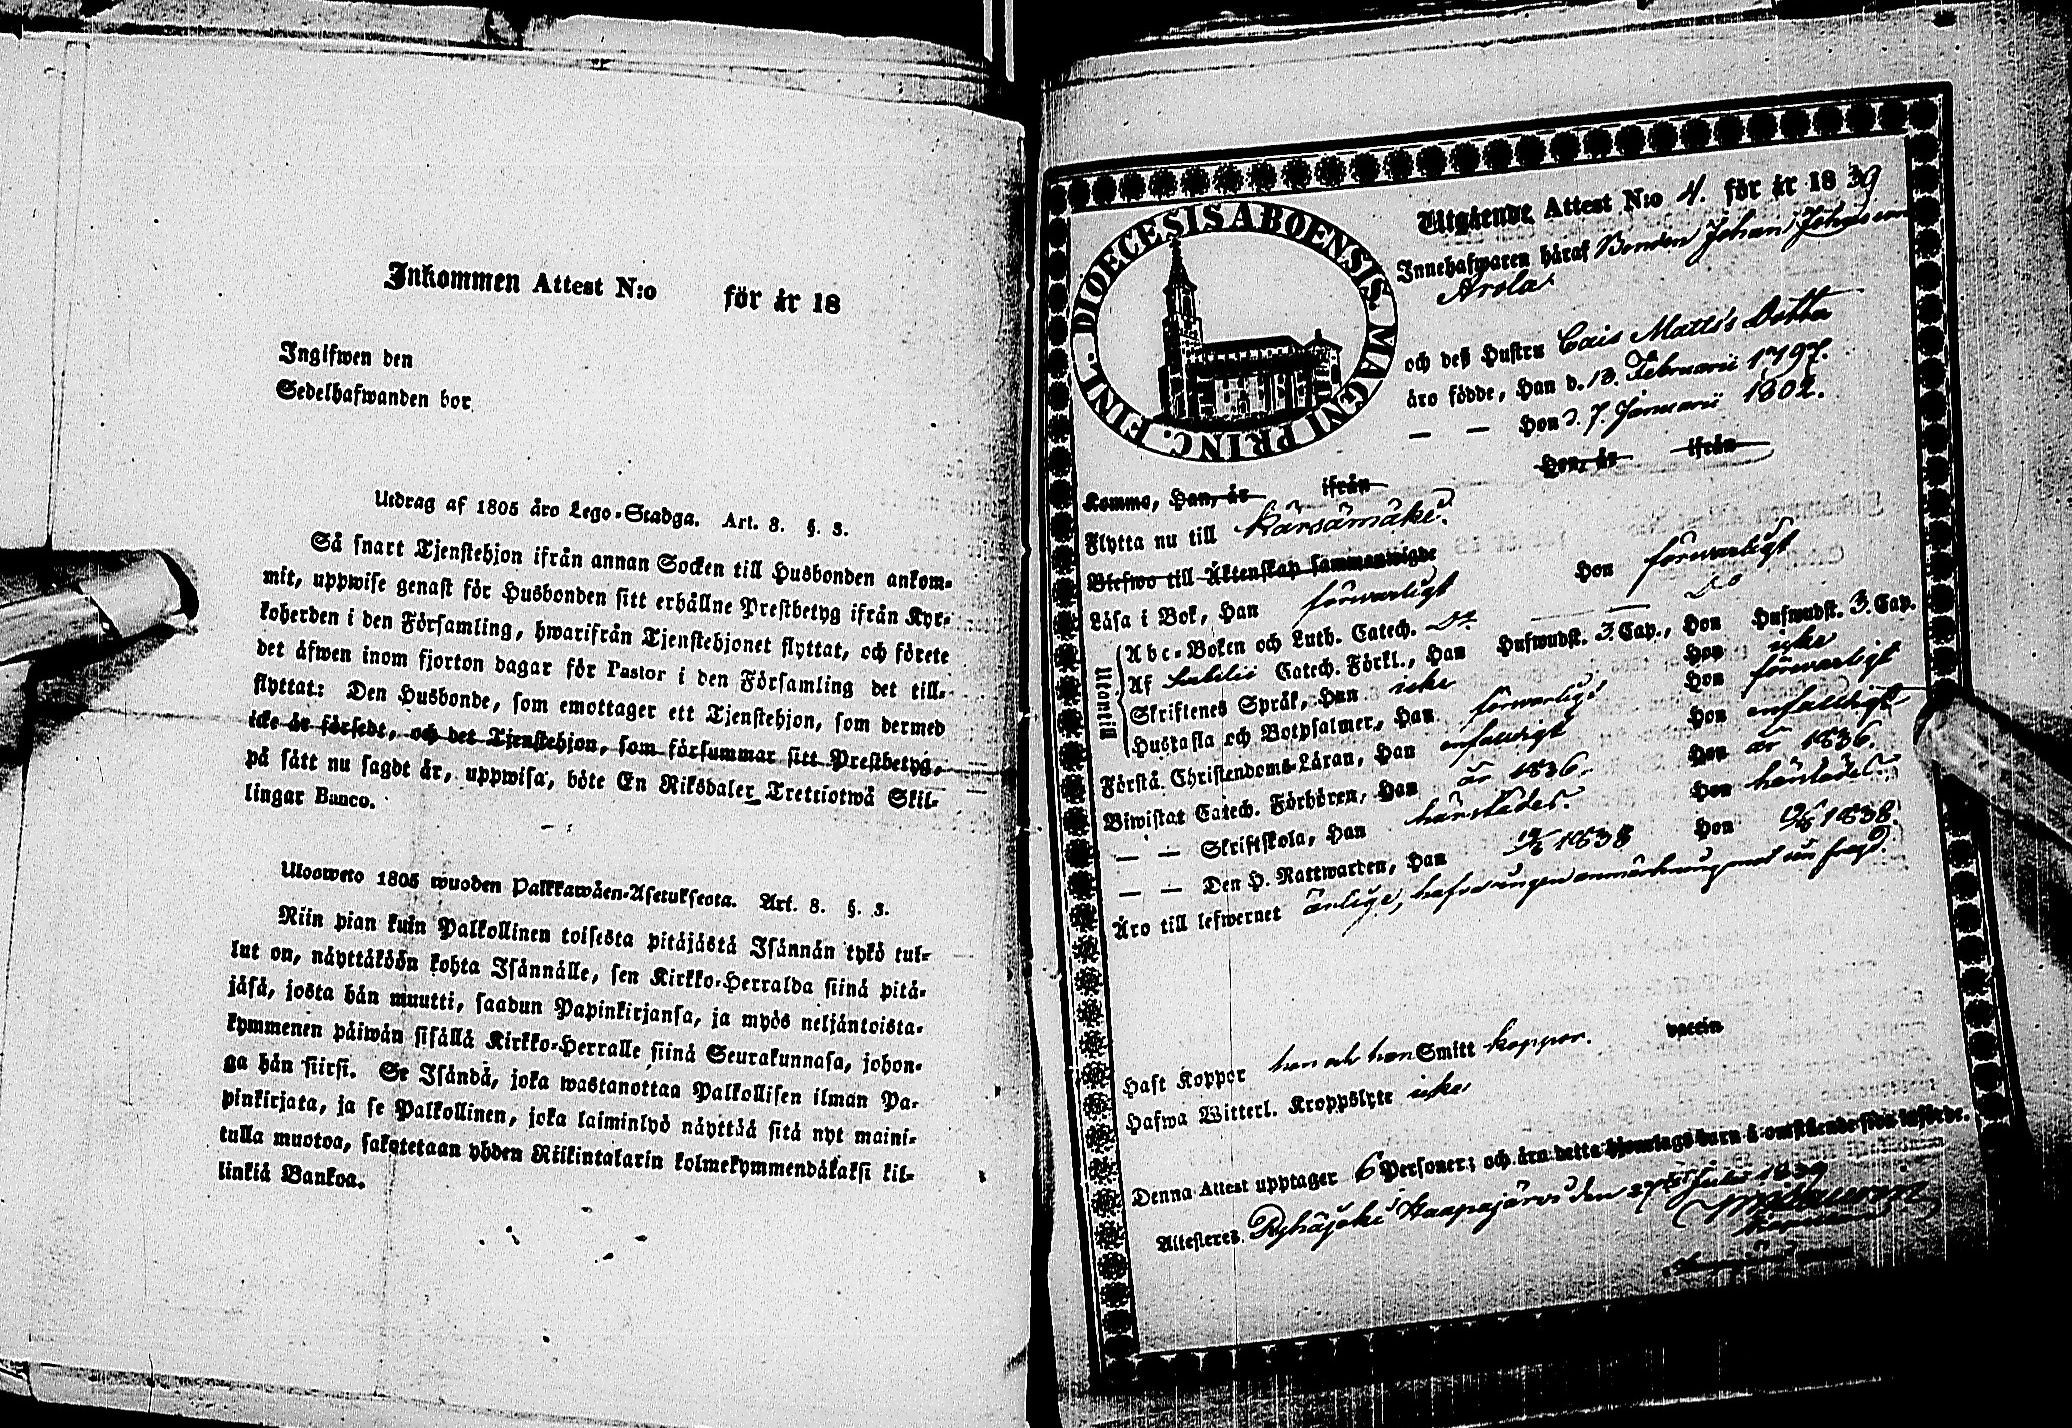 Inkommen Attest N:o för år 18
Ingifwen den
Sedelhafwanden bor
Utdrag af 1805 åro Lego-Stadga. Art. 8. §. 3.
Så snart Tjenstehjon ifrån annan Socken till Husbonden ankom-
mit, uppwise genast för Husbonden sitt erhållne Prestbetyg ifrån Kyr-
koherden i den Församling, hwarifrån Tjenstehjonet flyttat, och förete
det äfwen inom fjorton dagar för Pastor i den Församling det till-
flyttat: Den Husbonde, som emottager ett Tjenstehjon, som dermed
icke är försedt, och det Tjenstehjon, som försummar sitt Prestbetyg,
på sätt nu sagdt är, uppwisa, böte En Riksdaler Trettiotwå Skil-
lingar Banco.
Ulosweto 1805 wuoden Palkkawäen-Asetuksesta. Art. 8. §. 3.
Niin pian kuin Palkollinen toisesta pitäjästä Isännän tykö tul-
lut on, näyttäköön kohta Isännälle, sen Kirkko-Herralda siinä pitä-
jäsä, josta hän muutti, saadun Papinkirjansa, ja myös neljäntoista-
kymmenen päiwän sisällä Kirkko-Herralle siinä Seurakunnasa, johon-
ga hän siirsi. Se Isändä, joka wastanottaa Palkollisen ilman Pa-
pinkirjata, ja se Palkollinen, joka laiminlyö näyttää sitä nyt maini-
tulla muotoa, sakotetaan yhden Riikintalarin kolmekymmendäkaksi kil-
linkiä Bankoa.
DIOECESIS ABOENSIS MAGNI PRINC. FINL.
Utgående Attest N:o 4. för år 1839
Innehafwaren häraf Bonden Johan Johansson
Arola
och deß Hustru Cais Matts Dotter
äro födde, Han d. 13. Februarii 1797.
— — Hon d. 7. Januarii 1802.
Komma, Han, år ifrån Hon, år ifrån
Flytta nu till Kärsämäki.
Blefwo till Äktenskap sammanwigde
Läsa i Bok, Han förswarligt Hon förswarligt
Utantill
Abc-Boken och Luth. Catech. Do Do
Af Catech. Förkl., Han Hufwudst. 3. Cap., Hon Hufwudst. 3. Cap.
Skriftenes Språk, Han icke Hon icke
Hustafla och Botpsalmer, Han förswarligt Hon förswarligt
Förstå Christendoms-Läran, Han enfaldigt Hon enfaldigt
Biwistat Catech. Förhören, Han år 1836. Hon år 1836.
— — Skriftskola, Han härstädes. Hon härstädes.
— — Den H. Nattwarden, Han 1838 Hon 1838.
Äro till lefwernet ärlige, hafva ingen anmärkning mot sin frejd.
Haft Koppor han och hon Smitt koppor. vaccin
Hafwa Witterl. Kroppslyte icke
Denna Attest upptager 6 Personer; och äro detta hjonelags barn å omstående sida införde.
Attesteres Pyhäjoki Haapajärvi den Julii 1839